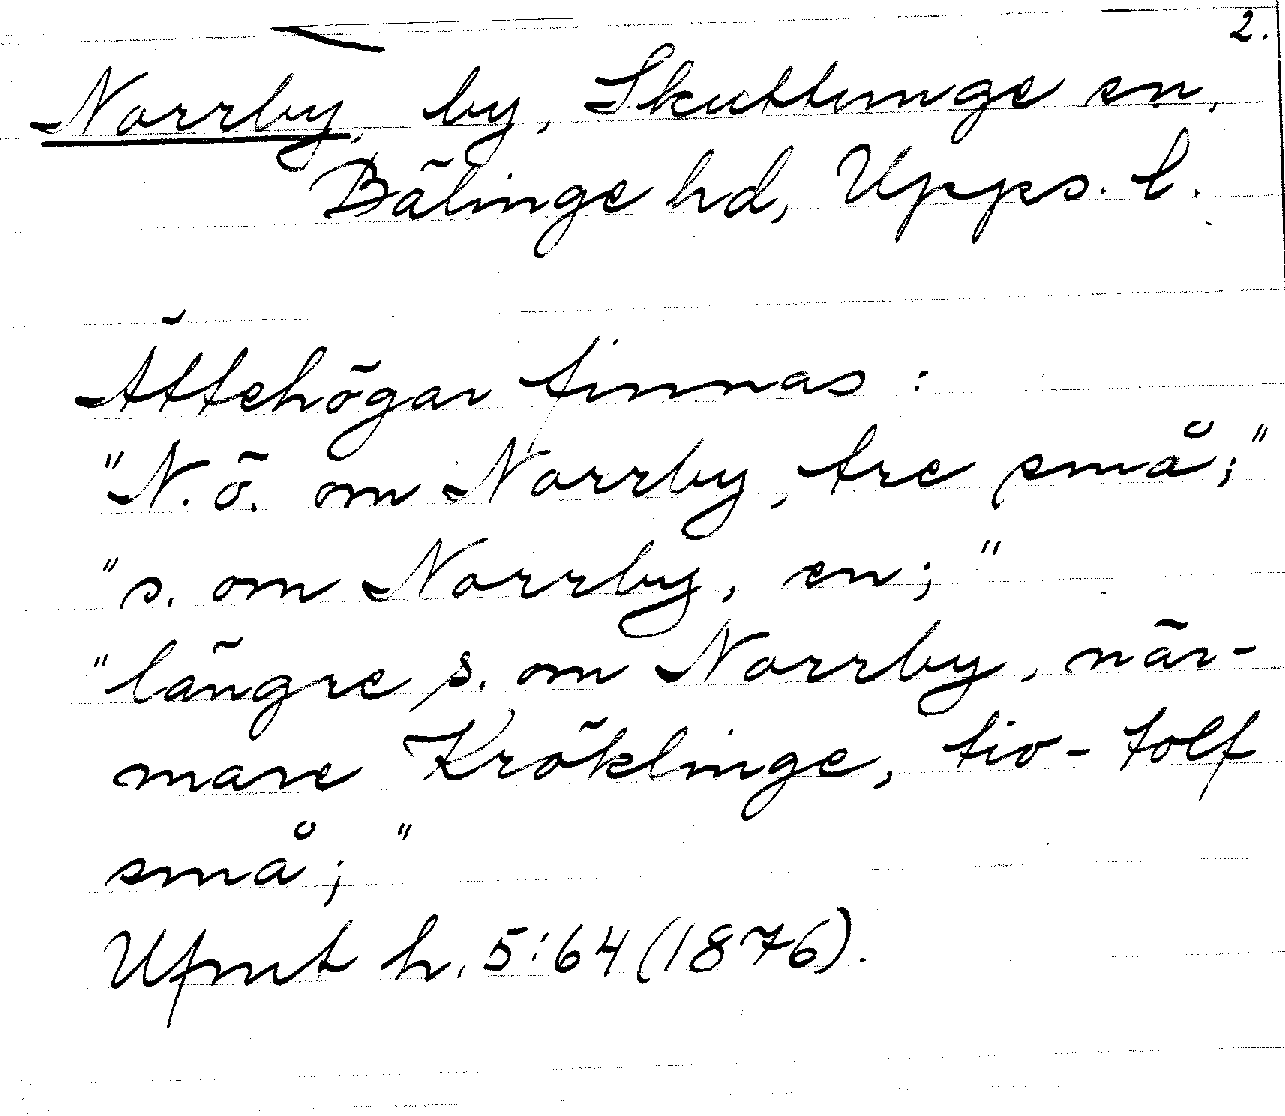 2.
Norrby, by, Skuttunge sn,
Bälinge hd, Upps. l.
Ättehögar finnas:
"N.ö. om Norrby, tre små;"
"s. om Norrby, en;"
"längre s. om Norrby, när-
mare Kröklinge, tio-tolf
små;"
Ufmt h. 5:64 (1876).